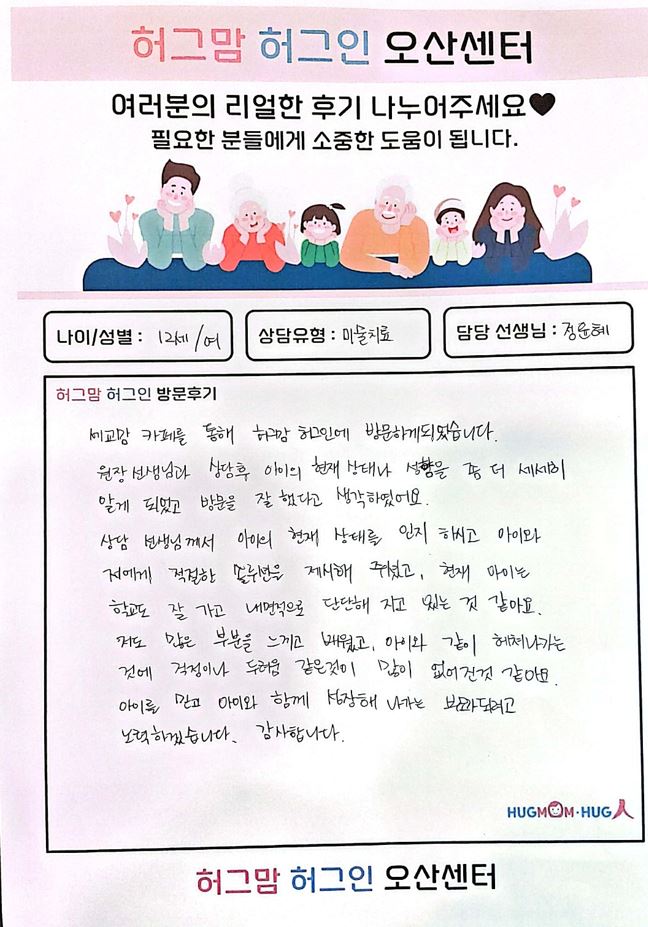 허그맘 허그인 오산센터
여러분의 리얼한 후기 나누어주세요🖤
필요한 분들에게 소중한 도움이 됩니다.
나이/성별 : 12세/여
상담유형 : 미술치료
담당 선생님 : 정윤혜
허그맘 허그인 방문후기
세교맘 카페를 통해 허그맘 허그인에 방문하게되었습니다.
원장선생님과 상담후 아이의 현재상태나 성향을 좀 더 세세히
알게 되었고 방문을 잘 했다고 생각하였어요.
상담 선생님께서 아이의 현재 상태를 인지 하시고 아이와
저에게 적절한 솔루션을 제시해 주셨고, 현재 아이는
학교도 잘 가고 내면적으로 단단해 지고 있는 것 같아요.
저도 많은 부분을 느끼고 배웠고, 아이와 같이 헤쳐나가는
것에 걱정이나 두려움 같은것이 많이 없어진것 같아요.
아이를 믿고 아이와 함께 성장해 나가는 부모가되려고
노력하겠습니다. 감사합니다.
HUGMOM·HUG人
허그맘 허그인 오산센터